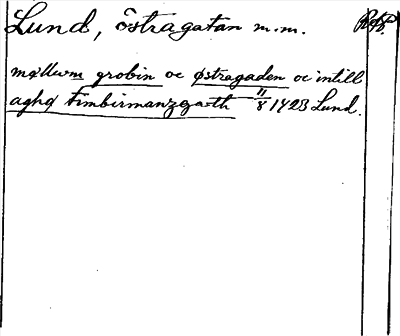 Lund, Östragatan m.m. RAP.
mællum grobin oc østragaden oc intill
aghæ timbirmanzgarth 11/8 1423 Lund.